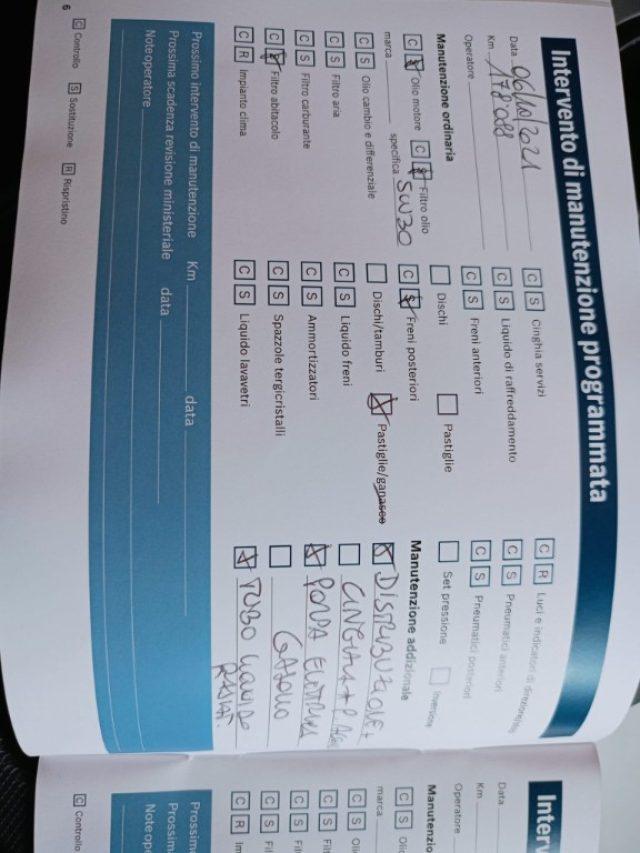 Intervento di manutenzione programmata
Data 06/10/2021
Km 178088
Operatore
Manutenzione ordinaria
C S Olio motore C S Filtro olio
marca specifica 5W30
C S Olio cambio e differenziale
C S Filtro aria
C S Filtro carburante
C S Filtro abitacolo
C R Impianto clima
C S Cinghia servizi
C S Liquido di raffreddamento
C S Freni anteriori
Dischi Pastiglie
C S Freni posteriori
Dischi/tamburi Pastiglie/ganasce
C S Liquido freni
C S Ammortizzatori
C S Spazzole tergicristalli
C S Liquido lavavetri
C R Luci e indicatori di direzione
C S Pneumatici anteriori
C S Pneumatici posteriori
Set pressione Inversione
Manutenzione addizionale
DISTRIBUZIONE +
CINGHIA + P.
POMPA ELETTRICA
GASOLIO
TUBO LIQUIDO
RADIAT.
Prossimo intervento di manutenzione Km data
Prossima scadenza revisione ministeriale data
Note operatore
6 C Controllo S Sostituzione R Rispristino
Interv
Data
Km
Operatore
Manutenzio
C S Olio
marca
C S Olio
C S Filt
C S Filt
C S Fil
C R Im
Prossimo
Prossim
Note ope
C Controllo